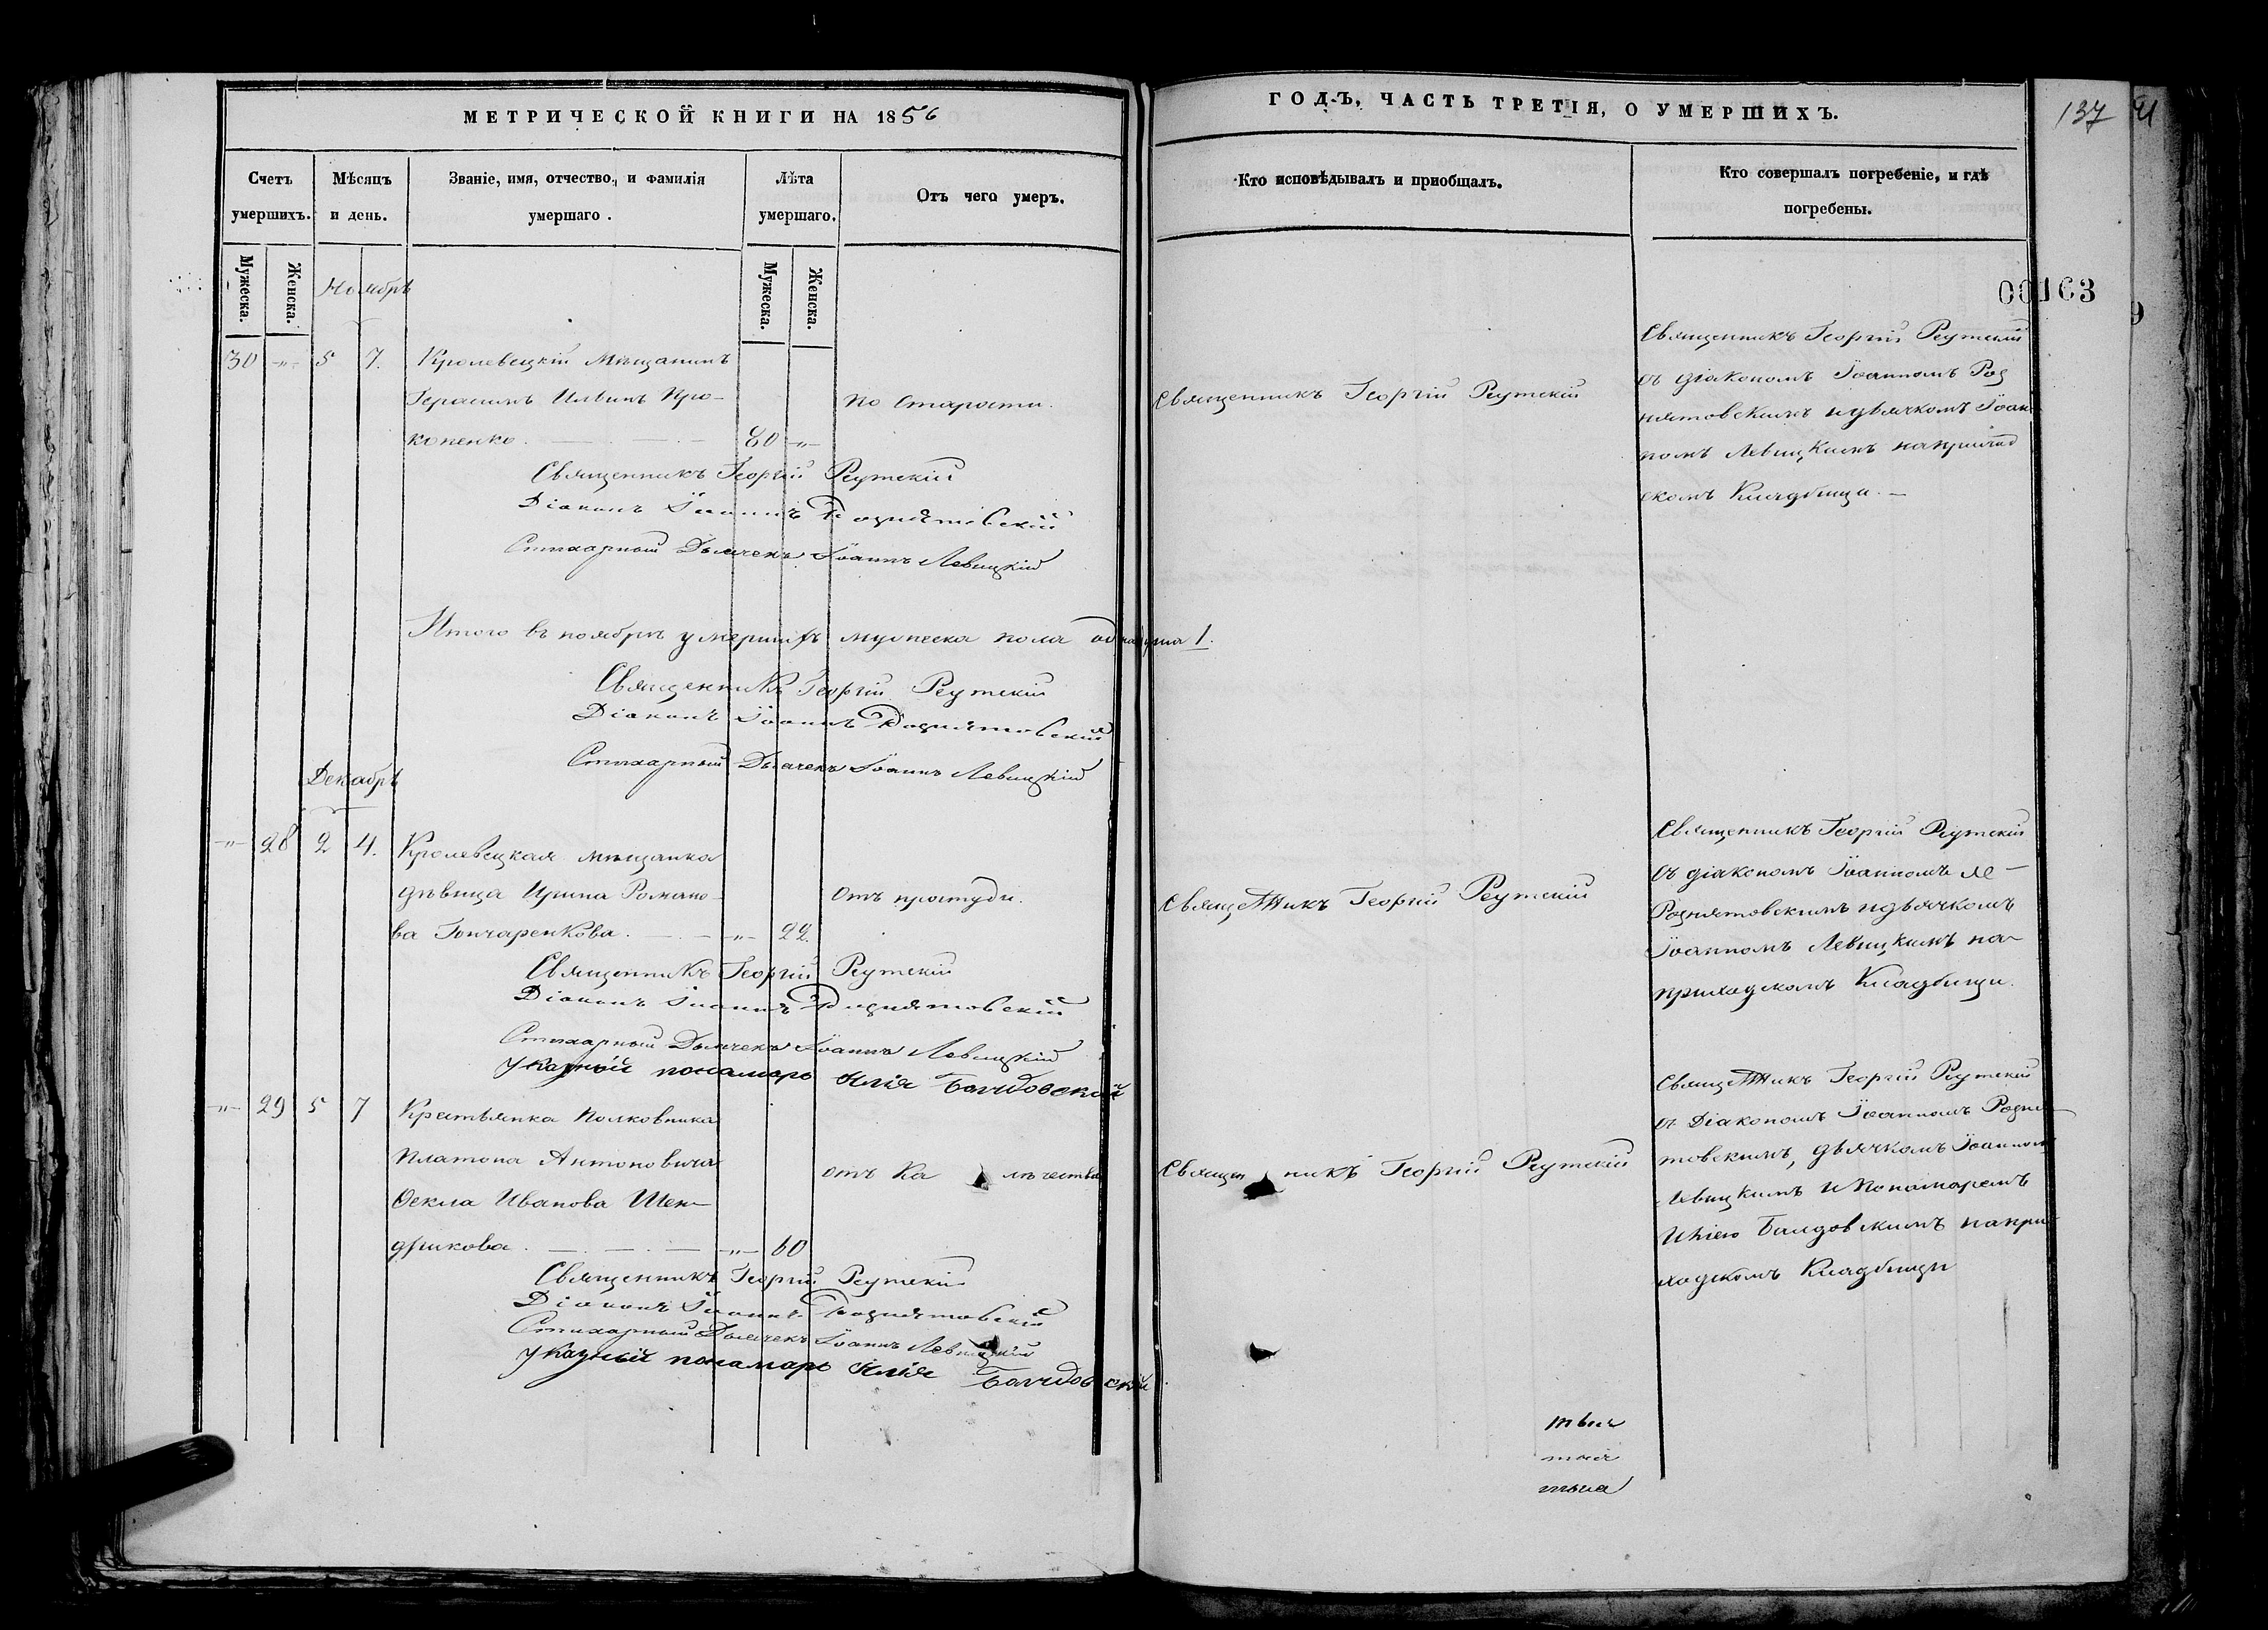 МЕТРИЧЕСКОЙ КНИГИ НА 1856
ГОДЪ, ЧАСТЬ ТРЕТІЯ, О УМЕРШИХЪ.
137
Счетъ умершихъ.
Мѣсяцъ и день.
Званіе, имя, отчество, и фамилія умершаго.
Лѣта умершаго.
Отъ чего умеръ.
Кто исповѣдывалъ и пріобщалъ.
Кто совершалъ погребеніе, и гдѣ погребены.
Мужеска.
Женска.
Мужеска.
Женска.
00163
Ноябрь
30 -„- 5 7. Кролевецкій Мѣщанинъ
Герасимъ Ильинъ Про-
копенко. 80 -„-
по Старости.
Священникъ Георгій Реутскій
Священникъ Георгій Реутскій
съ діакономъ Іоанномъ Род
нятовскимъ и дьячкомъ Іоан
номъ Левицкимъ на приход
скомъ Кладбищи.
Священникъ Георгій Реутскій
Діаконъ Іоаннъ Роднятовскій
Стихарный Дьячекъ Іоаннъ Левицкій
Итого въ ноябрѣ умершихъ мужеска пола одна душа 1.
Священникъ Георгій Реутскій
Діаконъ Іоаннъ Роднятовскій
Стихарный Дьячекъ Іоаннъ Левицкій
Декабрь
-„- 28 2 4. Кролевецкая мѣщанка
дѣвица Ирина Романо-
ва Гончаренкова. -„- 22.
Отъ простуди.
Священникъ Георгій Реутскій
Священникъ Георгій Реутскій
съ діакономъ Іоанномъ
Роднятовскимъ и дьячкомъ
Іоанномъ Левицкимъ на
приходскомъ Кладбищи.
Священникъ Георгій Реутскій
Діаконъ Іоаннъ Роднятовскій
Стихарный Дьячекъ Іоаннъ Левицкій
Указный понамарь Илія Балидовскій
-„- 29 5 7 Крестьянка Полковника
Платона Антоновича
Фекла Иванова Шен-
дрикова. -„- 60
отъ Калѣчества
Священникъ Георгій Реутскій
Священникъ Георгій Реутскій
съ Діакономъ Іоанномъ Родня
товскимъ, дьячкомъ Іоанномъ
Левицкимъ и Пономаремъ
Иліею Балидовскимъ на при
ходскомъ Кладбищи
Священникъ Георгій Реутскій
Діаконъ Іоаннъ Роднятовскій
Стихарный Дьячекъ Іоаннъ Левицкій
Указный понамарь Илія Балидовскій